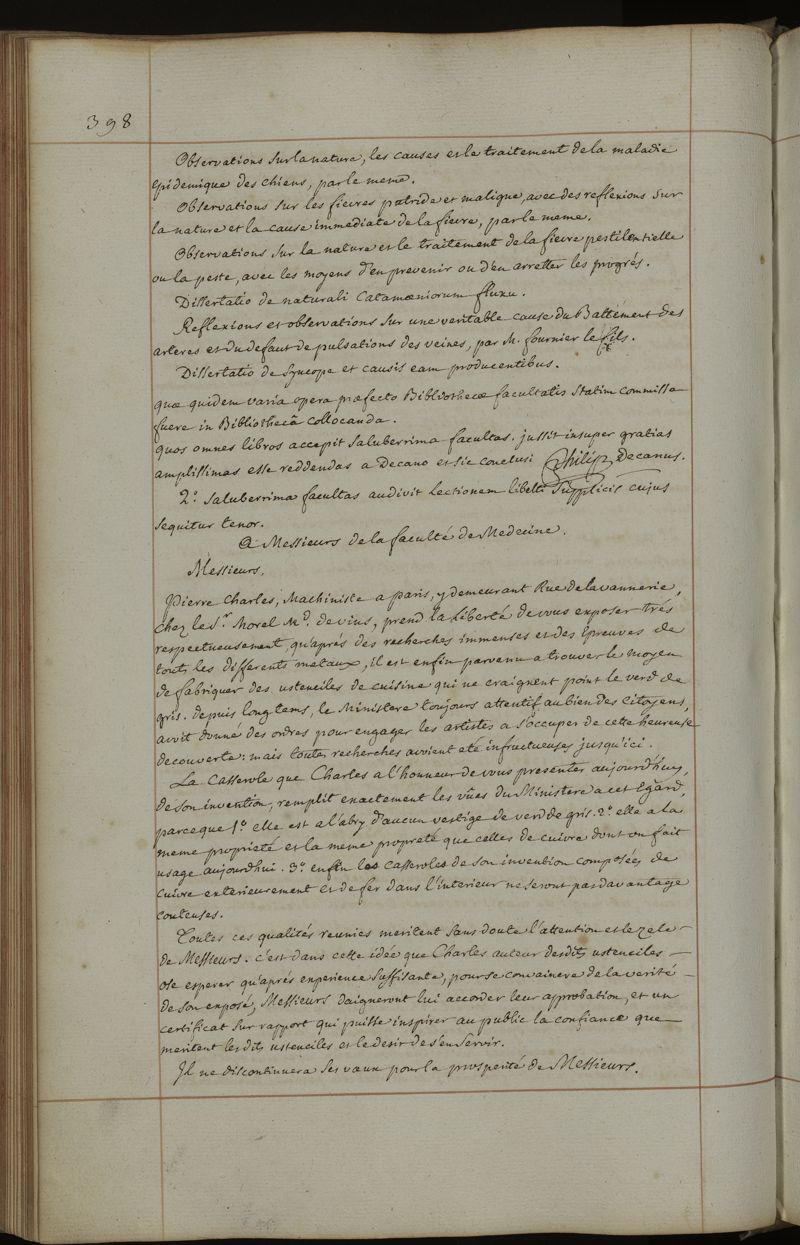 398
Observations sur la nature, les causes et le traitement de la maladie
epidemique des chiens, par le meme.
Observations sur les fievres putride et maligne, avec des reflexions sur
la nature et la cause immediate de la fievre, par le meme.
Observations sur la nature et le traitement de la fievre pestilentielle
ou la peste, avec les moyens d'en prevenir ou d'en arretter les progrés.
Dissertatio de naturali Catamœniorum fluxu.
Reflexions et observations sur une veritable cause du Battement des
arteres et du defaut de pulsations des veines, par M. fournier le fils.
Dissertatio de syncope et causis eam producentibus.
quæ quidem varia opera præfecto Bibliothecæ facultatis statim commissa
fuere in Bibliothecâ collocanda.
quos omnes libros accepit saluberrima facultas. jussit insuper gratias
amplissimas esse reddendas a Decano et sic conclusi Philip Decanus.
2.º saluberrima facultas audivit Lectionem libelli supplicis cujus
sequitur tenor.
A Messieurs de la faculté de Medecine.
Messieurs,
Pierre Charles, Machiniste a paris, y demeurant Rue de la vannerie,
chez le S.r Morel M.d de vins, prend la Liberté de vous exposer tres
respectueusement, qu'aprés des recherches immenses et des Epreuves de
touts les differents metaux, il est enfin parvenu a trouver le moyen
de fabriquer des ustenciles de cuisine qui ne craignent point le verd de
gris. depuis long tems, le Ministere toujours attentif au bien des Citoyens,
avoit donné des ordres pour engager les artistes a s'occuper de cette heureuse
decouverte: mais toutes recherches avoient eté infructueuses jusqu'ici.
La Casserole que Charles a l'honneur de vous presenter aujourd'huy,
de son invention, remplit exactement les vües du Ministere a cet Egard,
parceque 1.º elle est a l'abry d'aucun vestige de verd de gris. 2.º elle a la
meme proprieté et la meme propreté que celles de cuivre dont on fait
usage aujourdhui. 3.º enfin les casseroles de son invention composées de
cuivre exterieurement et de fer dans l'interieur ne seront pas davantage
couteuses.
Toutes ces qualités reunies meritent sans doute l'attention et le zele
de Messieurs. c'est dans cette idée que Charles auteur desdits ustenciles
ose esperer qu'aprés experience suffisante, pour se convaincre de la verité
de son exposé, Messieurs daigneront lui accorder leur approbation, et un
certificat sur rapport qui puisse inspirer au public la confiance que
meritent lesdits ustenciles et le desir de s'en servir.
Il ne discontinuera ses vœux pour la prosperité de Messieurs.